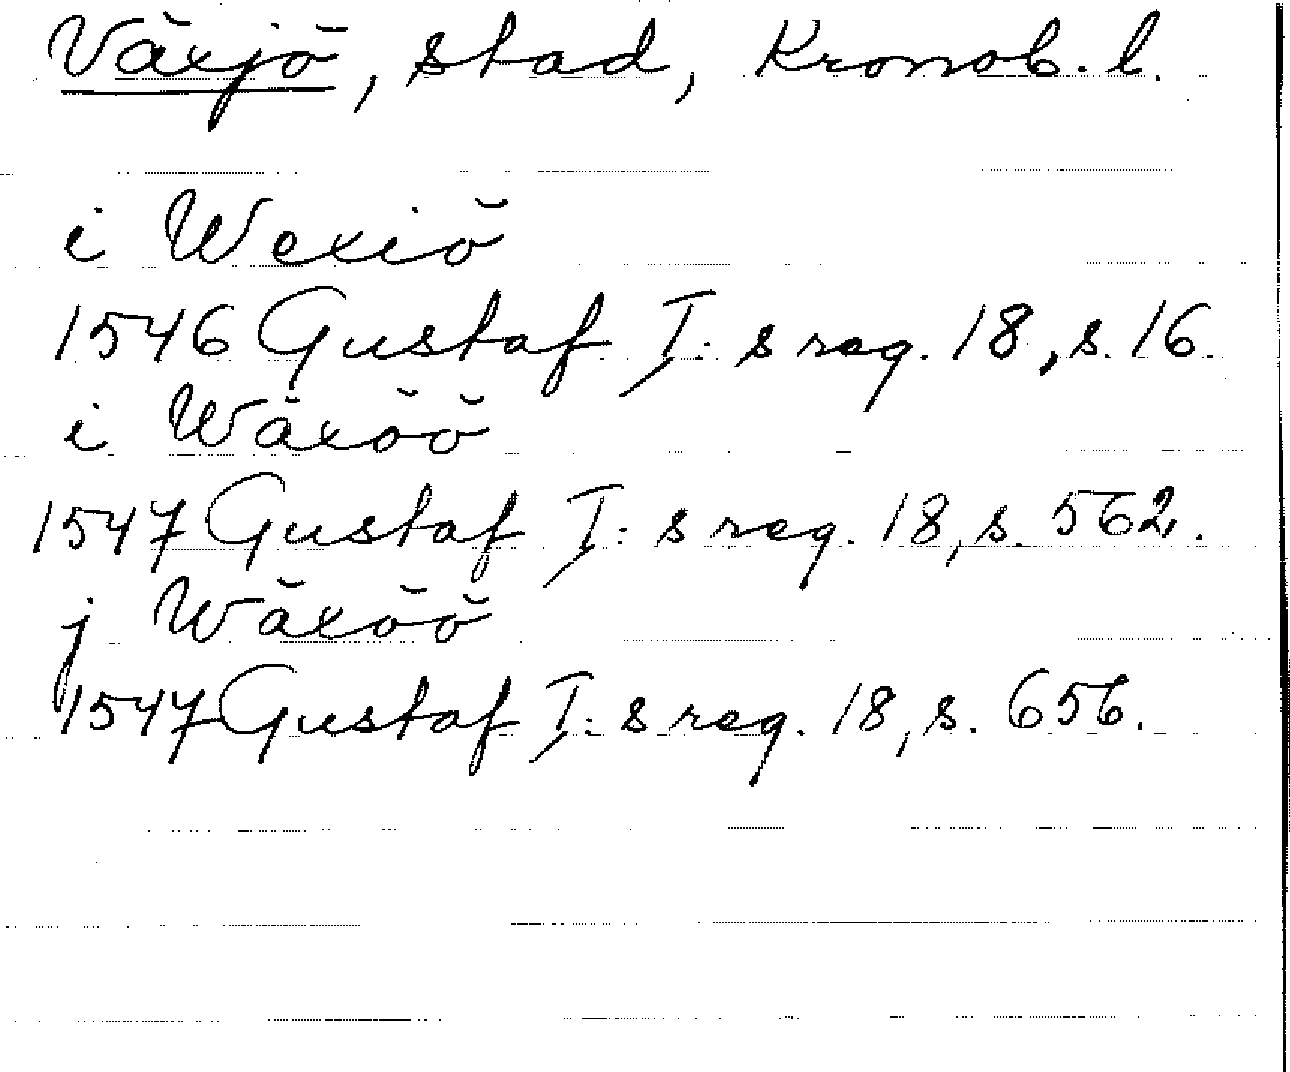 Växjö, stad, Kronob. l.
i Wexiö
1546 Gustaf I: s reg. 18, s. 16.
i Wäxöö
1547 Gustaf I: s reg. 18, s. 562.
j Wäxöö
1547 Gustaf I: s reg. 18, s. 656.